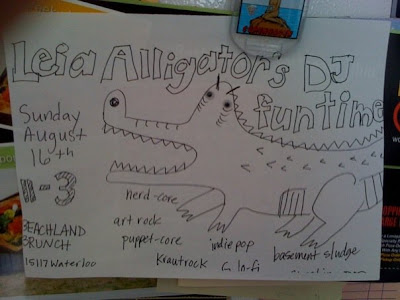 Leia Alligator's DJ
fun time
Sunday
August
16th
11-3
BEACHLAND
BRUNCH
15117 Waterloo
nerd-core
art rock
puppet-core
Krautrock
indie pop
lo-fi
basement sludge